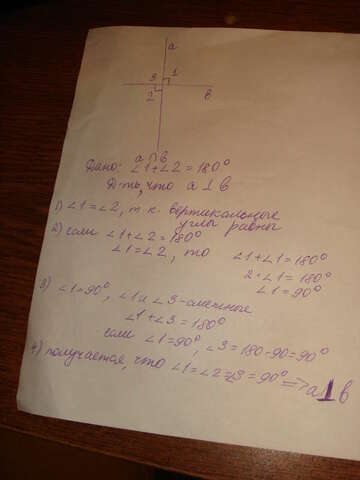 а
3 1
2 в
а ∩ в
Дано: ∠1+∠2=180°
Д-ть, что а ⊥ в
1) ∠1=∠2, т.к. вертикальные
углы равны
2) если ∠1+∠2=180° ∠1+∠1=180°
∠1=∠2, то 2·∠1=180°
∠1=90°
3) ∠1=90°, ∠1 и ∠3-смежные
∠1+∠3=180°
если ∠1=90°, ∠3=180-90=90°
4) получается, что ∠1=∠2=∠3=90° ⇒ а⊥в